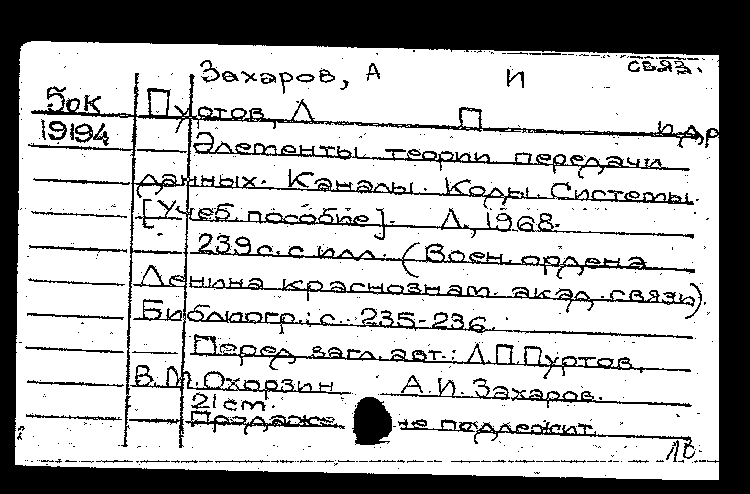 связ.
Захаров, А И
5ок Пуртов, Л П и др
19194
Элементы теории передачи
данных. Каналы. Коды. Системы.
[Учеб. пособие]. Л., 1968.
239 с. с илл. (Воен. ордена
Ленина краснознам. акад. связи).
Библиогр.: с. 235-236.
Перед загл. авт.: Л.П.Пуртов,
В.М.Охорзин А.И.Захаров.
21 cm.
Продаже не подлежит.